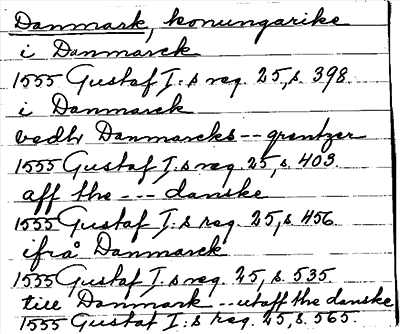 Danmark, konungarike
i Danmarck
1555 Gustaf I:s reg. 25, s. 398.
i Danmarck
vedh Danmarcks -- grentzer
1555 Gustaf I:s reg. 25, s. 403.
aff the --- danske
1555 Gustaf I:s reg. 25, s. 456.
ifrå Danmarck
1555 Gustaf I:s reg. 25, s. 535.
till Danmark -- utaff the danske
1555 Gustaf I:s reg. 25, s. 565.